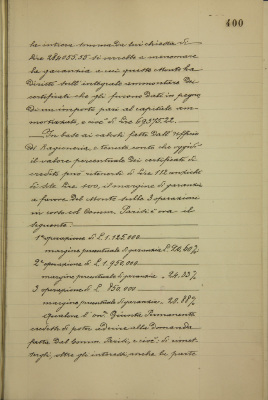 400
la intiera somma da lui chiesta di
Lire 284055.55 si verrebbe a menomare
la garanzia a cui questo Monte ha
diritto sull'integrale ammontare dei
certificati che gli furono dati in pegno
di un importo pari al capitale am
mortizzato, e cioè di Lire 69375.22.
In base ai calcoli fatti dall'ufficio
di Ragioneria, e tenuto conto che oggidì
il valore percentuale dei certificati di
credito può ritenersi di Lire 112 anziché
di sole Lire 100, il margine di garanzia
a favore del Monte sulle 3 operazioni
in corso col Comm. Parisi è ora il
seguente:
1ª operazione di £ 1.125.000
margine percentuale di garanzia £ 20.60%
2ª operazione di £ 1.950.000
margine percentuale di garanzia 24.33%
3 operazione di £ 850.000
margine percentuale di garanzia 28.88%
Qualora l'on. Giunta Permanente
credesse di poter aderire alla domanda
fatta dal Comm. Parisi, e cioè di rimet-
tergli, oltre gli interessi, anche la parte